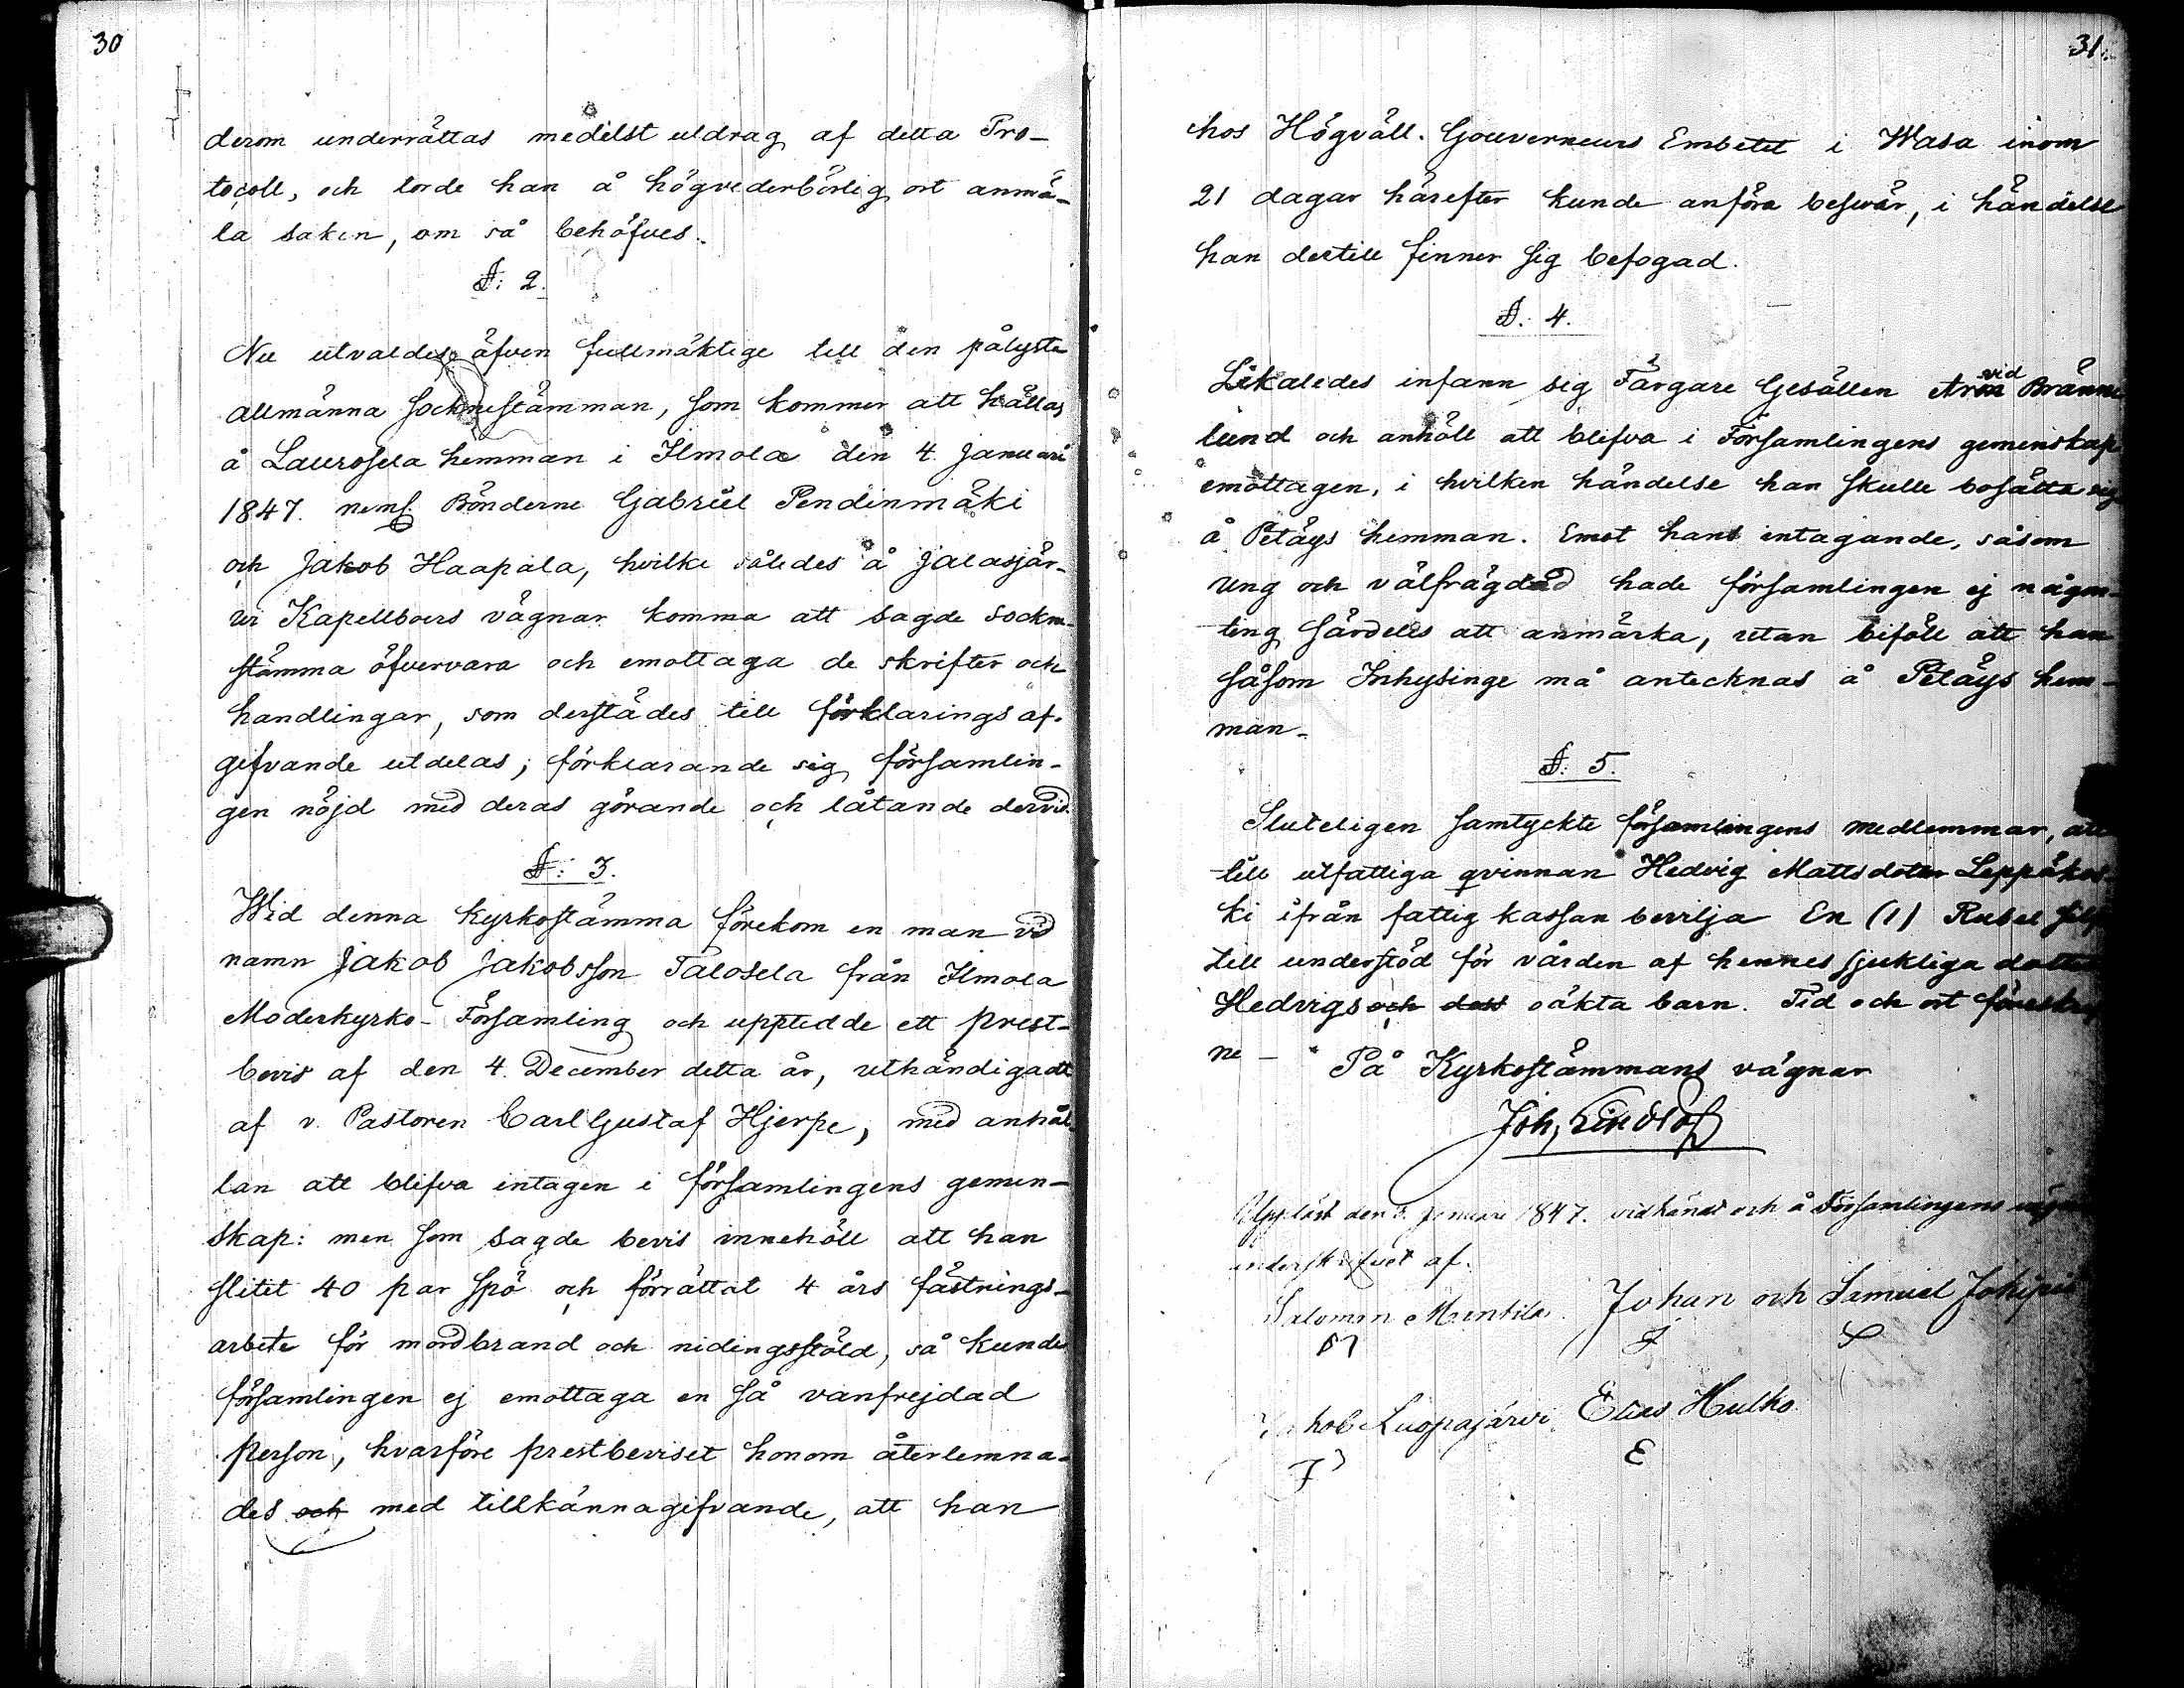 30
derom underrättas medelst utdrag af detta Pro-
tocoll, och torde han å högvederbörlig ort anmä-
la saken, om så behöfves.
§: 2.
Nu utvaldes äfven fullmäktige till den pålyste
allmänna socknestämman, som kommer att hållas
å Laurosela hemman i Ilmola den 4 Januari
1847. neml. Bönderne Gabriel Pendinmäki
och Jakob Haapala, hvilke således å Jalasjär-
vi Kapellboers vägnar komma att sagde sockne-
stämma öfvervara och emottaga de skrifter och
handlingar, som derstädes till förklarings af-
gifvande utdelas; förklarande sig församlin-
gen nöjd med deras görande och låtande dervid.
§: 3.
Wid denna Kyrkostämma förekom en man vid
namn Jakob Jakobsson Talosela från Ilmola
Moderkyrko-Församling och upptedde ett prest-
bevis af den 4. December detta år, uthändigadt
af v. Pastoren Carl Gustaf Hjerpe, med anhål-
lan att blifva intagen i församlingens gemen-
skap: men som sagde bevis innehöll att han
slitit 40 par spö och förrättat 4 års fästnings-
arbete för mordbrand och nidingsstöld, så kunde
församlingen ej emottaga en så vanfrejdad
person, hvarföre prestbeviset honom återlemna-
des och med tillkännagifvande, att han
31.
hos Högväll. Gouverneurs Embetet i Wasa inom
21 dagar härefter kunde anföra besvär, i händelse
han dertill finner sig befogad.
§: 4.
Likaledes infann sig Färgare Gesällen Arvid Bränne
lund och anhöll att blifva i Församlingens gemenskap
emottagen, i hvilken händelse han skulle bosätta sig
å Petäys hemman. Emot hans intagande, såsom
ung och välfrägdad hade församlingen ej någon-
ting särdeles att anmärka, utan biföll att han
såsom Inhysinge må antecknas å Petäys hem-
man.
§: 5.
Sluteligen samtyckte församlingens medlemmar, att
till utfattiga qvinnan Hedvig Mattsdoter Leppäkos-
ki ifrån fattig kassan bevilja En (1) Rubel silf
till understöd för vården af hennes sjukliga dotter
Hedvigs och dess oäkta barn. Tid och ort föreskrif
ne - På Kyrkostämmans vägnar
Joh, Lindlöf
Uppläst den Januari 1847. vidkändt och å Församlingens vägnar
underskrifvet af.
Salomon Mantila. Johan och Samuel Jokipii
SM J S
Jakob Luopajärvi Elias Hulko.
J E